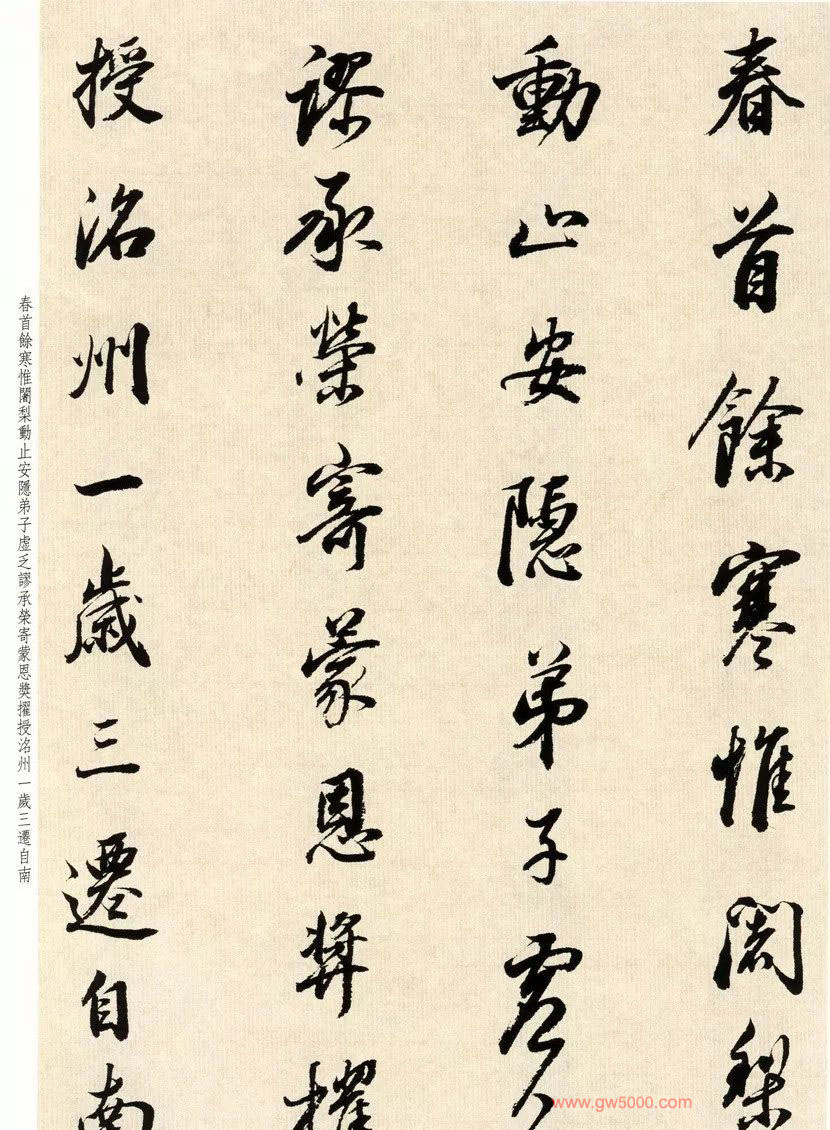 春首餘寒惟闍梨
動止安隱弟子虛乏
謬承榮寄蒙恩獎擢
授洺州一歲三遷自南
春首餘寒惟闍梨動止安隱弟子虛乏謬承榮寄蒙恩獎擢授洺州一歲三遷自南
www.gw5000.com